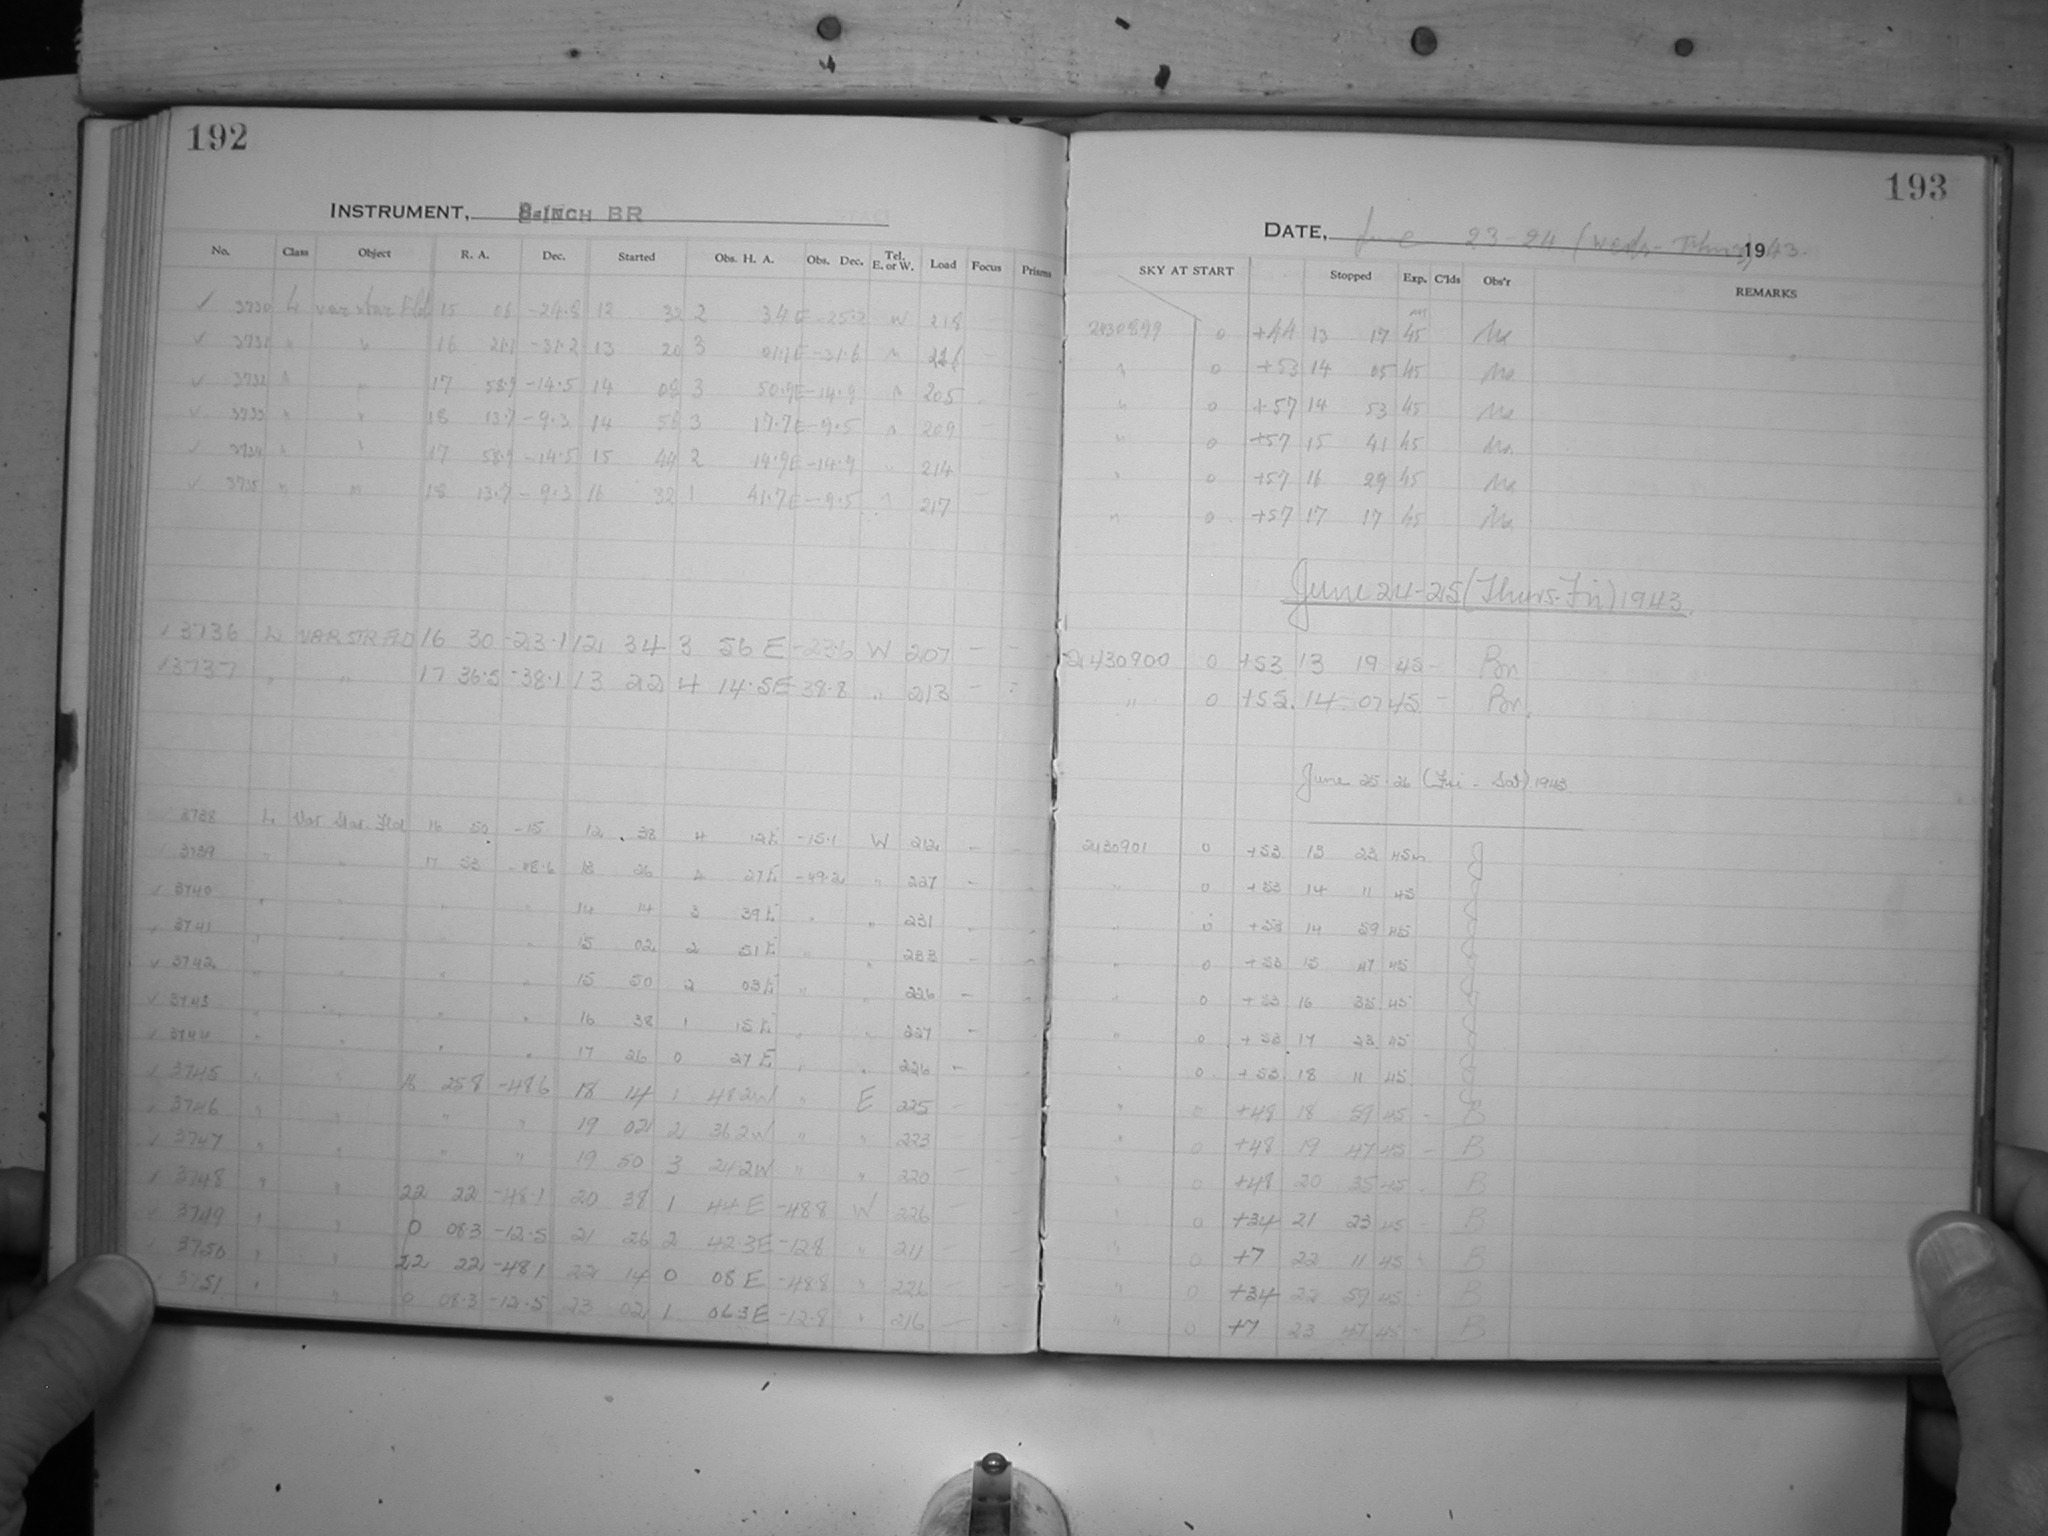 192
193
INSTRUMENT, 8-INCH BR
DATE, June 23-24 (Weds-Thurs) 1943.
No. Class Object R. A. Dec. Started Obs. H. A. Obs. Dec. Tel. E. or W. Load Focus Prisms
SKY AT START Stopped Exp. C'lds Obs'r REMARKS
✓ 3730 L var star Fld 15 06 -24.8 12 32 2 34E -25.2 W 218 2430899 0 +44 13 17 45 Ma
✓ 3731 " " 16 21.1 -31.2 13 20 3 01.1E -31.6 " 0 +53 14 05 45 Ma
✓ 3732 " " 17 58.9 -14.5 14 08 3 50.9E -14.9 " 205 " 0 +57 14 53 45 Ma
✓ 3733 " " 18 13.7 -9.3 14 56 3 17.7E -9.5 " 209 " 0 +57 15 41 45 Ma
✓ 3734 " " 17 58.9 -14.5 15 44 2 14.9E -14.9 " 214 " 0 +57 16 29 45 Ma
✓ 3735 " " 18 13.7 -9.3 16 32 1 41.7E -9.5 " 217 " 0 +57 17 17 45 Ma
June 24-25 (Thurs-Fri) 1943.
✓ 3736 L VAR STR FLD 16 30 -23.1 12 34 3 56 E -23.6 W 207 - - 2430900 0 +53 13 19 45 - Bn
✓ 3737 " " 17 36.5 -38.1 13 22 4 14.5E 38.8 " 213 - - " 0 +55. 14 07 45 - Bn.
June 25-26 (Fri - Sat) 1943
3738 L Var Star Fld 16 50 -15 12 38 4 12E -15.1 W 212 - - 2430901 0 +53 13 23 45m J
✓ 3739 " " 17 53 -48.6 13 26 4 27E -49.2 " 227 - " 0 +53 14 11 45 J
✓ 3740 " " " " 14 14 3 39E " " 231 " 0 +53 14 59 45 J
✓ 3741 " " " " 15 02 2 51E " " 233 - " 0 +53 15 47 45 J
✓ 3742 " " " " 15 50 2 03E " " 226 - " 0 +53 16 35 45 J
✓ 3743 " " " " 16 38 1 15E " " 227 - " 0 +53 17 23 45 J
✓ 3744 " " " " 17 26 0 27E " " 226 - " 0 +53 18 11 45 J
✓ 3745 " " 16 25.8 -48.6 18 14 1 48.2W " E 225 - - " 0 +48 18 59 45 - B
✓ 3746 " " " " 19 02 2 36.2W " " 223 - - " 0 +48 19 47 45 - B
✓ 3747 " " " " 19 50 3 24.2W " " 220 - - " 0 +48 20 35 45 - B
✓ 3748 " " 22 22 -48.1 20 38 1 44E -48.8 W 226 - - " 0 +34 21 23 45 - B
✓ 3749 " " 0 08.3 -12.5 21 26 2 42.3E -12.8 " 211 - - " 0 +7 22 11 45 - B
✓ 3750 " " 22 22 -48.1 22 14 0 08E -48.8 " - - " 0 +34 22 59 45 - B
✓ 3751 " " 0 08.3 -12.5 23 02 1 06.3E -12.8 " 216 - - " 0 +7 23 47 45 - B